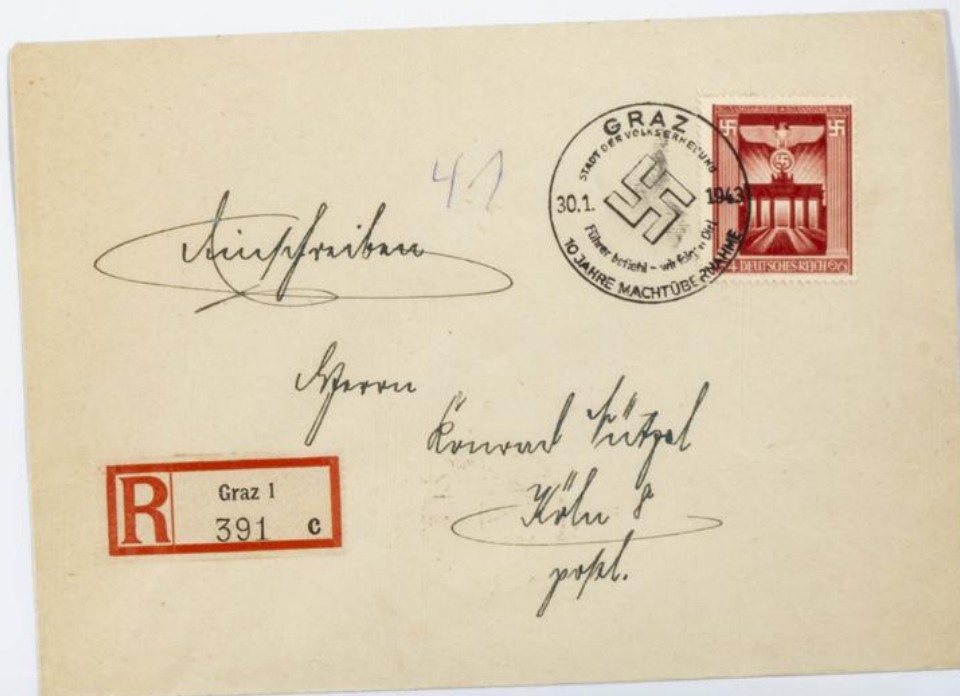 GRAZ
STADT DER VOLKSERHEBUNG
30.1. 1943
Führer befiehl – wir folgen Dir!
10 JAHRE MACHTÜBERNAHME
DEUTSCHES REICH
41
Einschreiben
Herrn
Konrad
Köln 8
postl.
R Graz 1
391 c